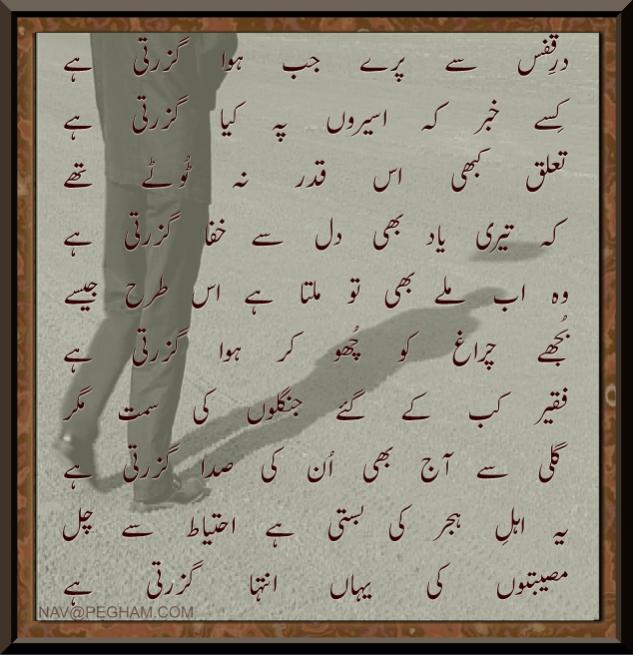 درِقفس سے پرے جب ہوا گزرتی ہے
کِسے خبر کہ اسیروں پہ کیا گزرتی ہے
تعلق کبھی اس قدر نہ ٹُوٹے تھے
کہ تیری یاد بھی دل سے خفا گزرتی ہے
وہ اب ملے بھی تو ملتا ہے اس طرح جیسے
بُجھے چراغ کو چُھو کر ہوا گزرتی ہے
فقیر کب کے گئے جنگلوں کی سمت مگر
گلی سے آج بھی اُن کی صدا گزرتی ہے
یہ اہلِ ہجر کی بستی ہے احتیاط سے چل
مصیبتوں کی یہاں انتہا گزرتی ہے
NAV@PEGHAM.COM